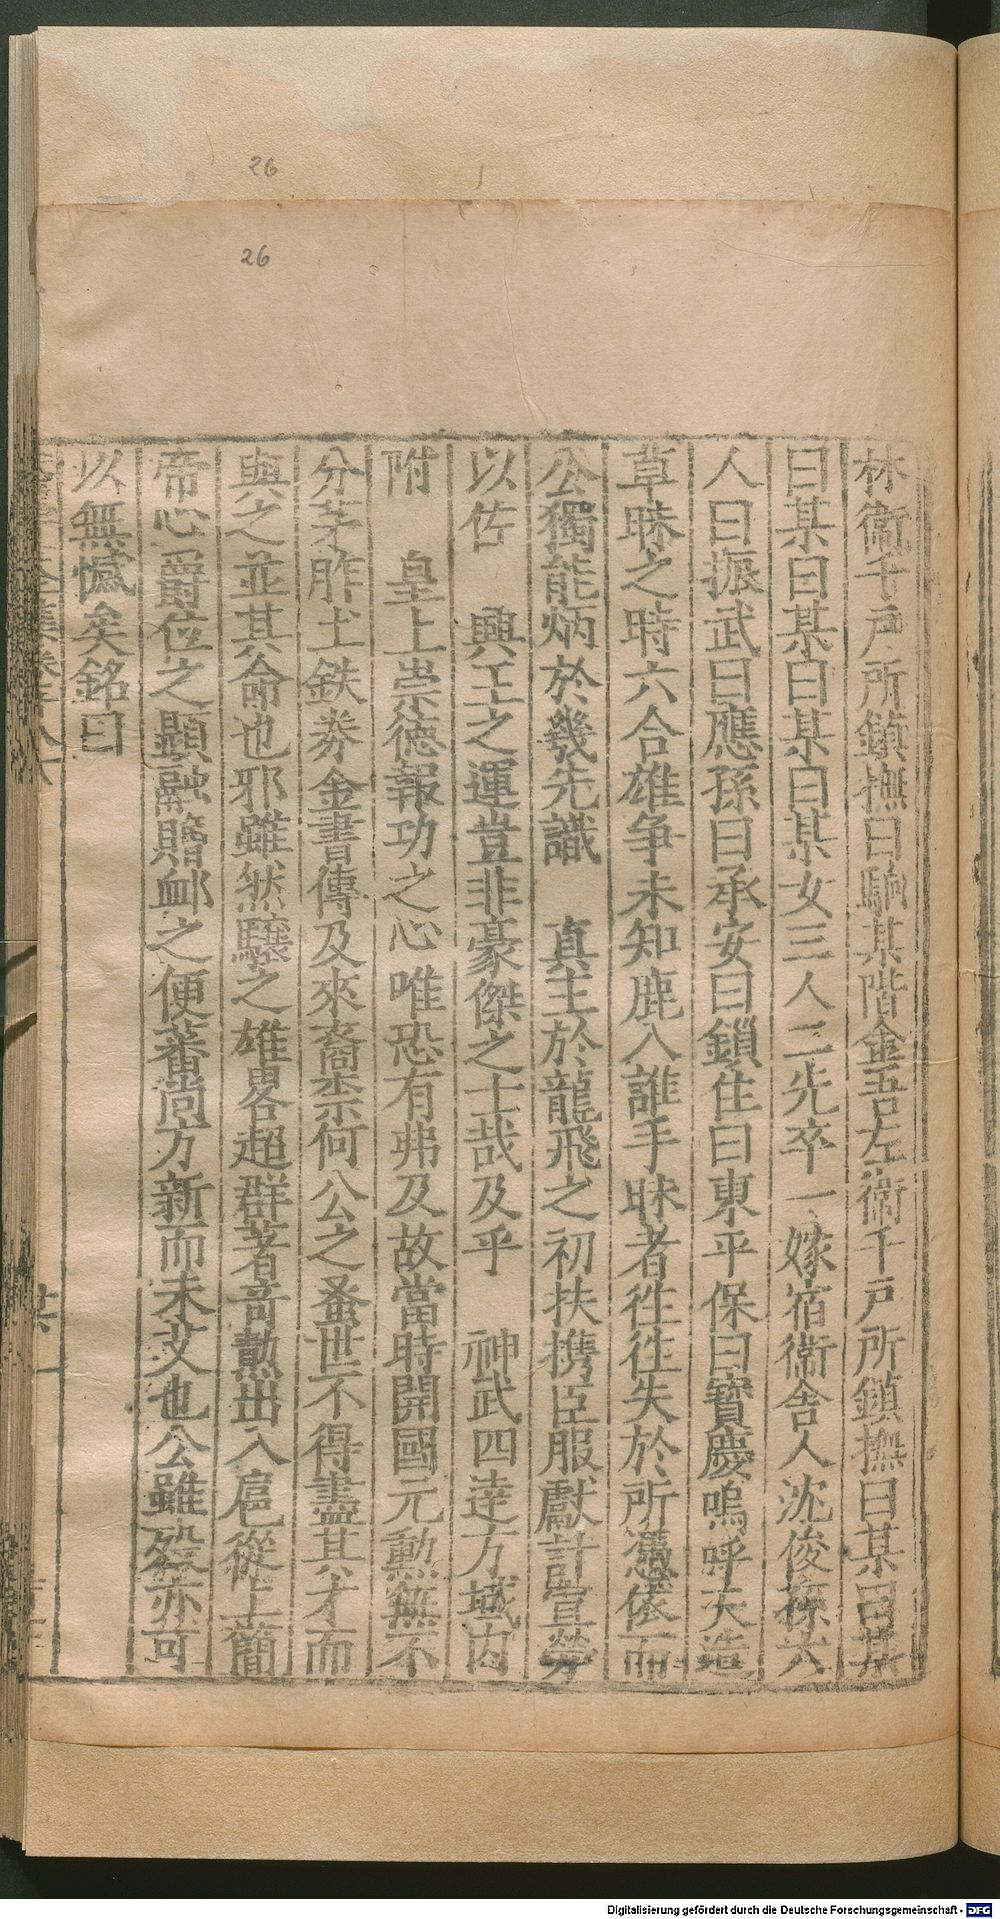 26
26
林衞千戶所鎮撫曰駒某階金吾左衞千戶所鎮撫曰某曰某
曰某曰某曰某曰某女三人二先卒一嫁宿衞舍人沈俊孫六
人曰振武曰應孫曰承安曰鎖住曰東平保曰寶慶嗚呼天造
草昧之時六合雄争未知鹿入誰手昧者徃徃失於所憑依而
公獨能炳於幾先識　真主於龍飛之初扶携臣服獻計宣勞
以佐　興王之運豈非豪傑之士哉及乎　神武四達方域内
附　皇上崇德報功之心唯恐有弗及故當時開國元勲無不
分茅胙土鉄券金書傳及來裔柰何公之蚤世不得盡其才而
與之並其命也邪雖然驤之雄畧超群著竒勲出入扈從上簡
帝心爵位之顯融贈䘏之便蕃尚方新而未艾也公雖殁亦可
以無憾矣銘曰
Digitalisierung gefördert durch die Deutsche Forschungsgemeinschaft - DFG